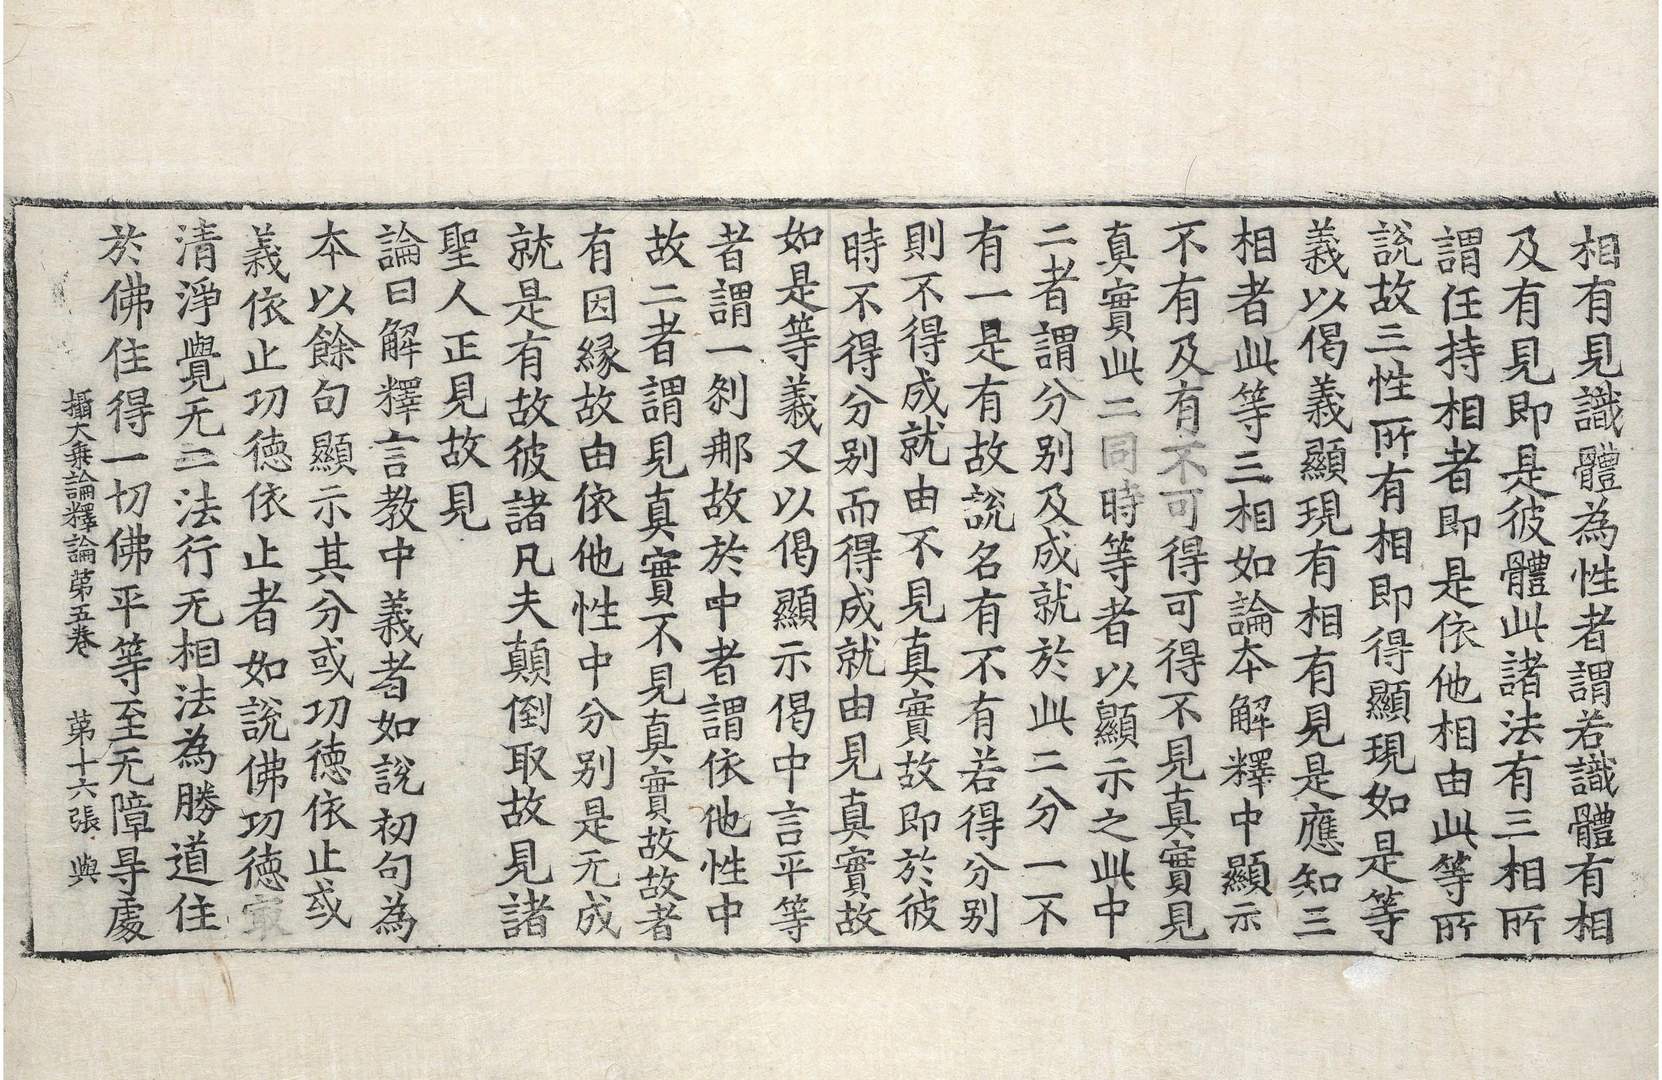 相有見識體為性者謂若識體有相
及有見即是彼體此諸法有三相所
謂任持相者即是依他相由此等所
說故三性所有相即得顯現如是等
義以偈義顯現有相有見是應知三
相者此等三相如論本解釋中顯示
不有及有不可得可得不見真實見
真實此二同時等者以顯示之此中
二者謂分別及成就於此二分一不
有一是有故說名有不有若得分別
則不得成就由不見真實故即於彼
時不得分別而得成就由見真實故
如是等義又以偈顯示偈中言平等
者謂一剎那故於中者謂依他性中
故二者謂見真實不見真實故故者
有因緣故由依他性中分別是无成
就是有故彼諸凡夫顛倒取故見諸
聖人正見故見
論曰解釋言教中義者如說初句為
本以餘句顯示其分或功德依止或
義依止功德依止者如說佛功德㝡
清淨覺无二法行无相法為勝道住
於佛住得一切佛平等至无障㝵處
攝大乘論釋論第五卷　第十六張　與